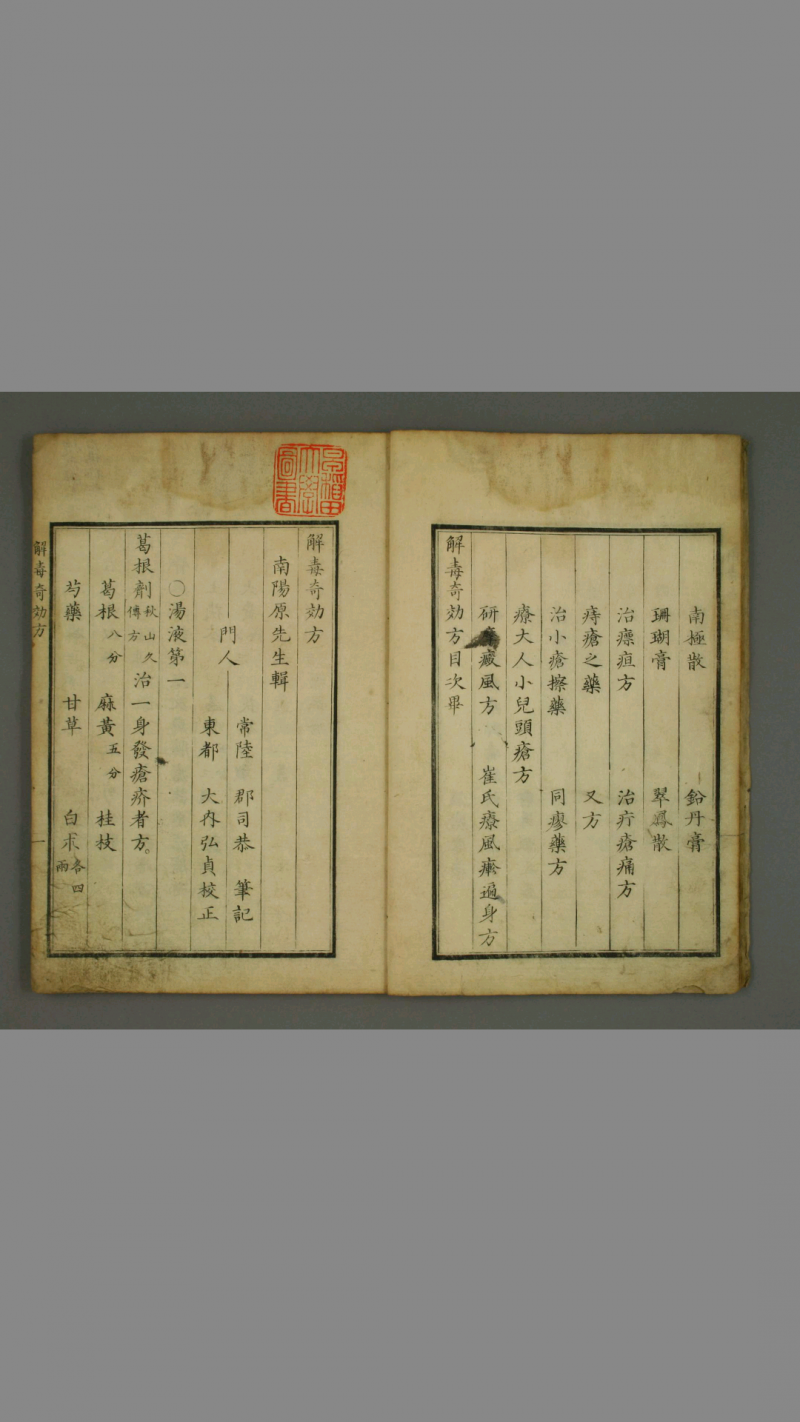 南極散　鉛丹膏
珊瑚膏　翠鳳散
治瘭疽方　治疔瘡痛方
痔瘡之藥　又方
治小瘡擦藥　同瘳藥方
療大人小兒頭瘡方
研 風方　崔氏療風 遍身方
解毒奇効方目次畢
早稲田大學圖書
解毒奇効方
南陽原先生輯
常陸　郡司恭　筆記
門人
東都　大内弘貞校正
〇湯液第一
葛根劑 秋山久傳方 治一身發瘡疥者方。
葛根 八分　麻黃 五分　桂枝
芍藥　甘草　白朮 各四両
解毒奇効方　一